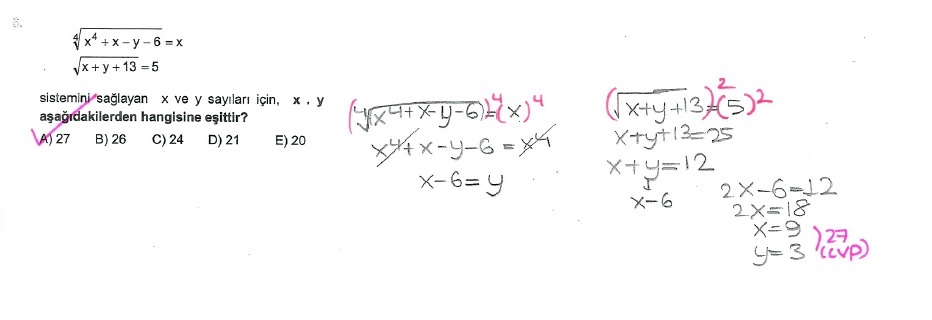 8.
∜(x⁴ + x – y – 6) = x
√(x + y + 13) = 5
sistemini sağlayan x ve y sayıları için, x . y
aşağıdakilerden hangisine eşittir?
A) 27 B) 26 C) 24 D) 21 E) 20
(∜(x⁴+x-y-6))⁴=(x)⁴
x⁴+x-y-6 = x⁴
x-6=y
(√(x+y+13))²=(5)²
x+y+13=25
x+y=12
x-6
2x-6=12
2x=18
x=9
y=3
27
(CVP)